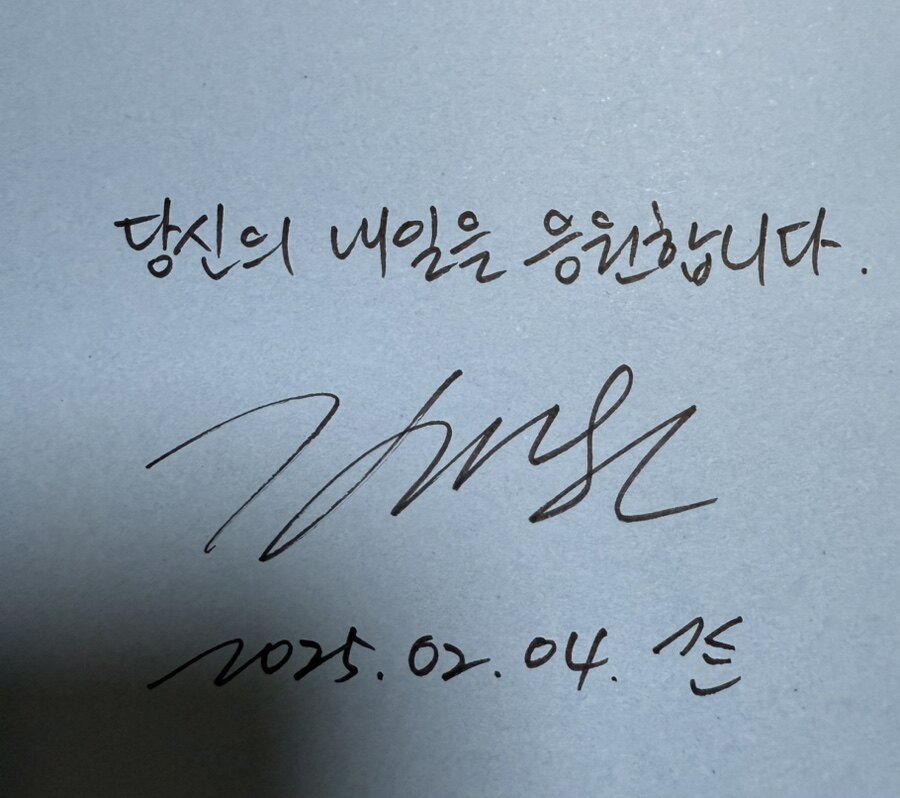 당신의 내일을 응원합니다.
2025.02.04.